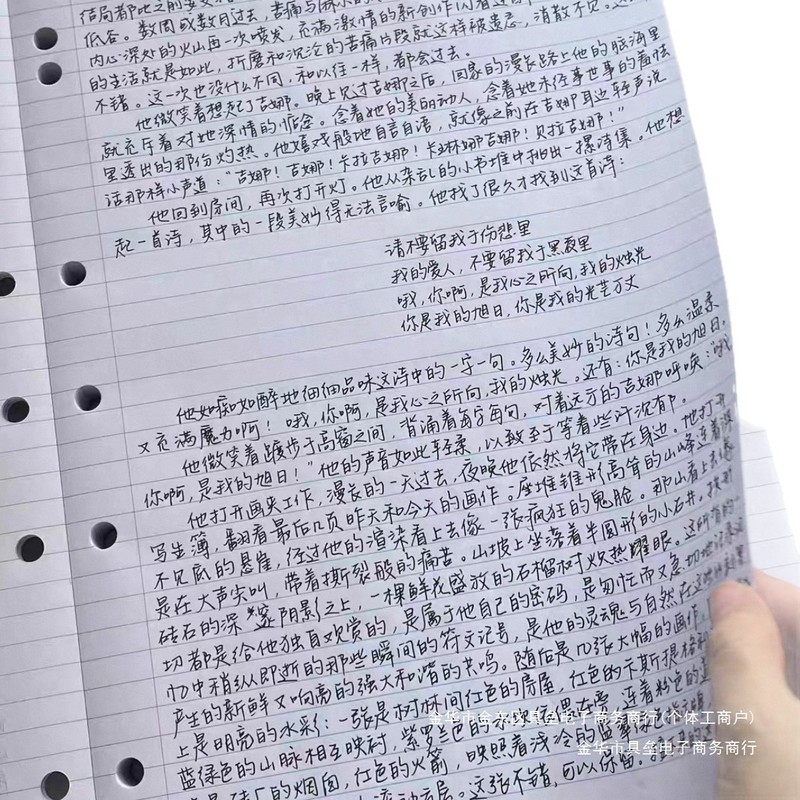 低谷。数周或数月过去，
内心深处的火山再一次喷发，充满激情的新创作
的生活就是如此，折磨和沉沦的苦痛片段就这样被遗忘，消散不见。
不错。这一次也没什么不同，和以往一样，都会过去。
他微笑着想起了吉娜。晚上见过吉娜之后，回家的漫长路上他的脑海里
就充斥着对她深情的惦念。念着她的美丽动人，念着她未经事世事的羞怯
里透出的那份灼热。他嬉戏般地自言自语，就像之前在吉娜耳边轻声说
话那样小声道：“吉娜！吉娜！卡拉吉娜！卡琳娜吉娜！贝拉吉娜！”
他回到房间，再次打开灯。他从杂乱的小书堆中抽出一摞诗集。他想
起一首诗，其中的一段美妙得无法言喻。他找了很久才找到这首诗：
请不要留我于伤悲里
我的爱人，不要留我于黑夜里
哦，你啊，是我心之所向，我的烛光
你是我的旭日，你是我的光芒万丈
他如痴如醉地细细品味这诗中的一字一句。多么美妙的诗句！多么温柔
又充满魔力啊！哦，你啊，是我心之所向，我的烛光。还有：你是我的旭日。
他微笑着踱步于高窗之间，背诵着每字每句，对着远方的吉娜呼唤：“哦
你啊，是我的旭日！”他的声音如此轻柔，以致于
他打开画夹工作，漫长的一天过去，夜晚他依然将它带在身边。他打开
写生簿，翻看最后几页昨天和今天的画作。座堆锥形高耸的山峰连着深
不见底的悬崖，经过他的渲染看上去像一张疯狂的鬼脸。那山看上去
是在大声尖叫，带着撕裂般的痛苦。山坡上坐落着半圆形的小石井，
砖石的深邃阴影之上，一棵鲜花盛放的石榴树火热耀眼。这所有的一
切都是给他独自欢赏的，是属于他自己的密码，是匆忙而又急切地记录
忆中稍纵即逝的那些瞬间的符文记号，是他的灵魂与自然在
产生的新鲜又响亮的强大和谐的共鸣。随后是几张大幅的画作，
上是明亮的水彩：一张是树林间红色的房屋，红色的卡斯提格
蓝绿色的山脉相互映衬，紫罗兰色的
的烟囱，红色的火箭，映照着浅冷的蓝
这张不错，可以保留。
金华市金东区具垒电子商务商行(个体工商户)
金华市具垒电子商务商行